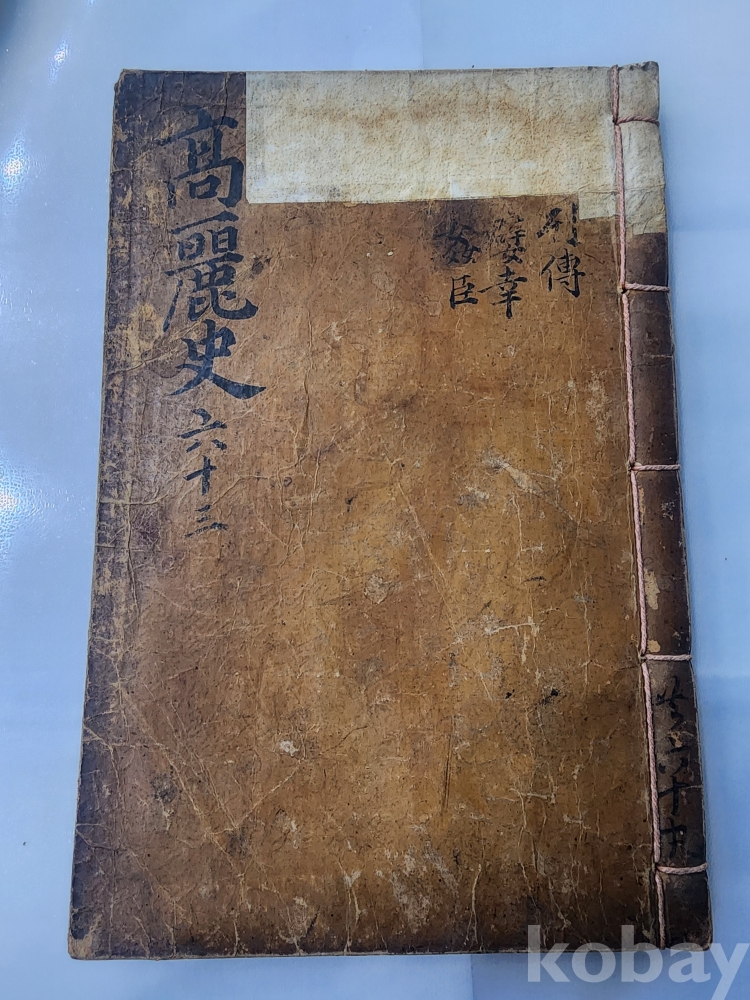 高麗史 六十三
列傳
嬖幸
姦臣
共六十卄
kobay